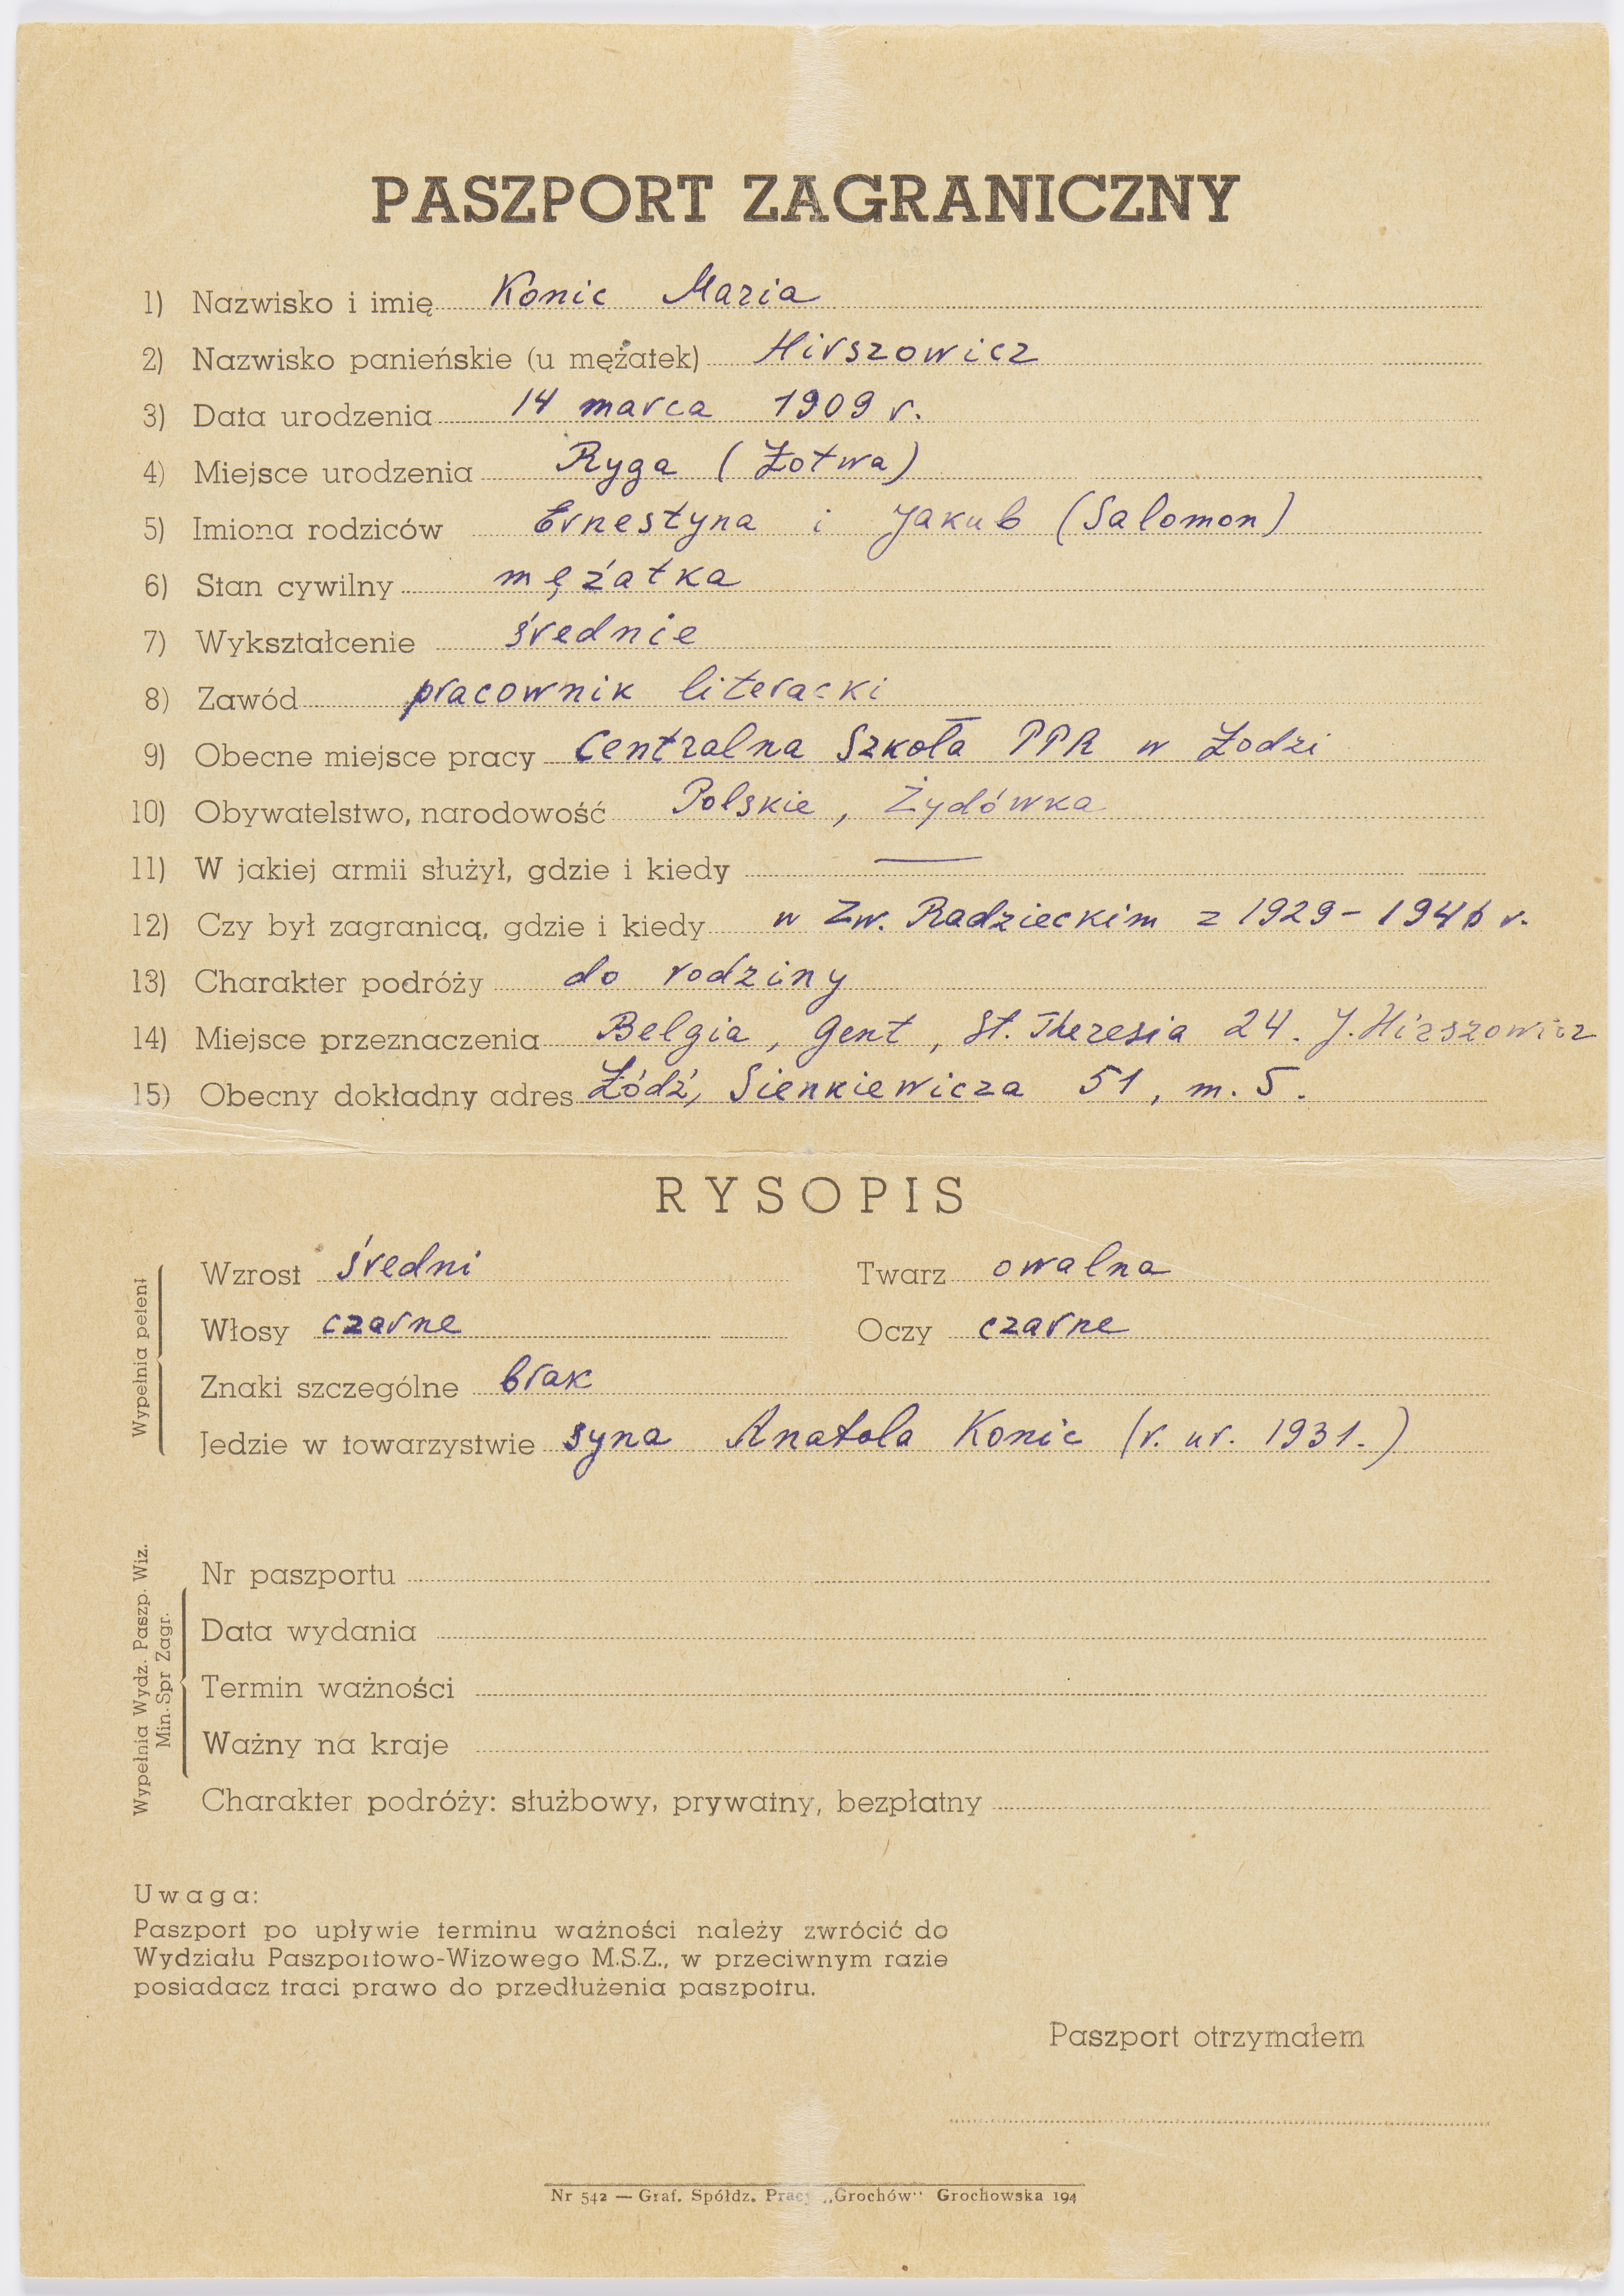 PASZPORT ZAGRANICZNY
1) Nazwisko i imię Konic Maria
2) Nazwisko panieńskie (u mężatek) Hirszowicz
3) Data urodzenia 14 marca 1909 r.
4) Miejsce urodzenia Ryga (Łotwa)
5) Imiona rodziców Ernestyna i Jakub (Salomon)
6) Stan cywilny mężatka
7) Wykształcenie średnie
8) Zawód pracownik literacki
9) Obecne miejsce pracy Centralna Szkoła PPR w Łodzi
10) Obywatelstwo, narodowość Polskie, Żydówka
11) W jakiej armii służył, gdzie i kiedy —
12) Czy był zagranicą, gdzie i kiedy w Zw. Radzieckim z 1929 - 1946 r.
13) Charakter podróży do rodziny
14) Miejsce przeznaczenia Belgia, Gent, St. Theresia 24. J. Hirszowicz
15) Obecny dokładny adres Łódź, Sienkiewicza 51, m. 5.
RYSOPIS
Wypełnia petent
Wzrost średni Twarz owalna
Włosy czarne Oczy czarne
Znaki szczególne brak
Jedzie w towarzystwie syna Anatola Konic (r. ur. 1931.)
Wypełnia Wydz. Paszp. Wiz.
Min. Spr Zagr.
Nr paszportu
Data wydania
Termin ważności
Ważny na kraje
Charakter podróży: służbowy, prywatny, bezpłatny
Uwaga:
Paszport po upływie terminu ważności należy zwrócić do
Wydziału Paszportowo-Wizowego M.S.Z., w przeciwnym razie
posiadacz traci prawo do przedłużenia paszpotru.
Paszport otrzymałem
Nr 542 — Graf. Spółdz. Pracy „Grochów" Grochowska 194